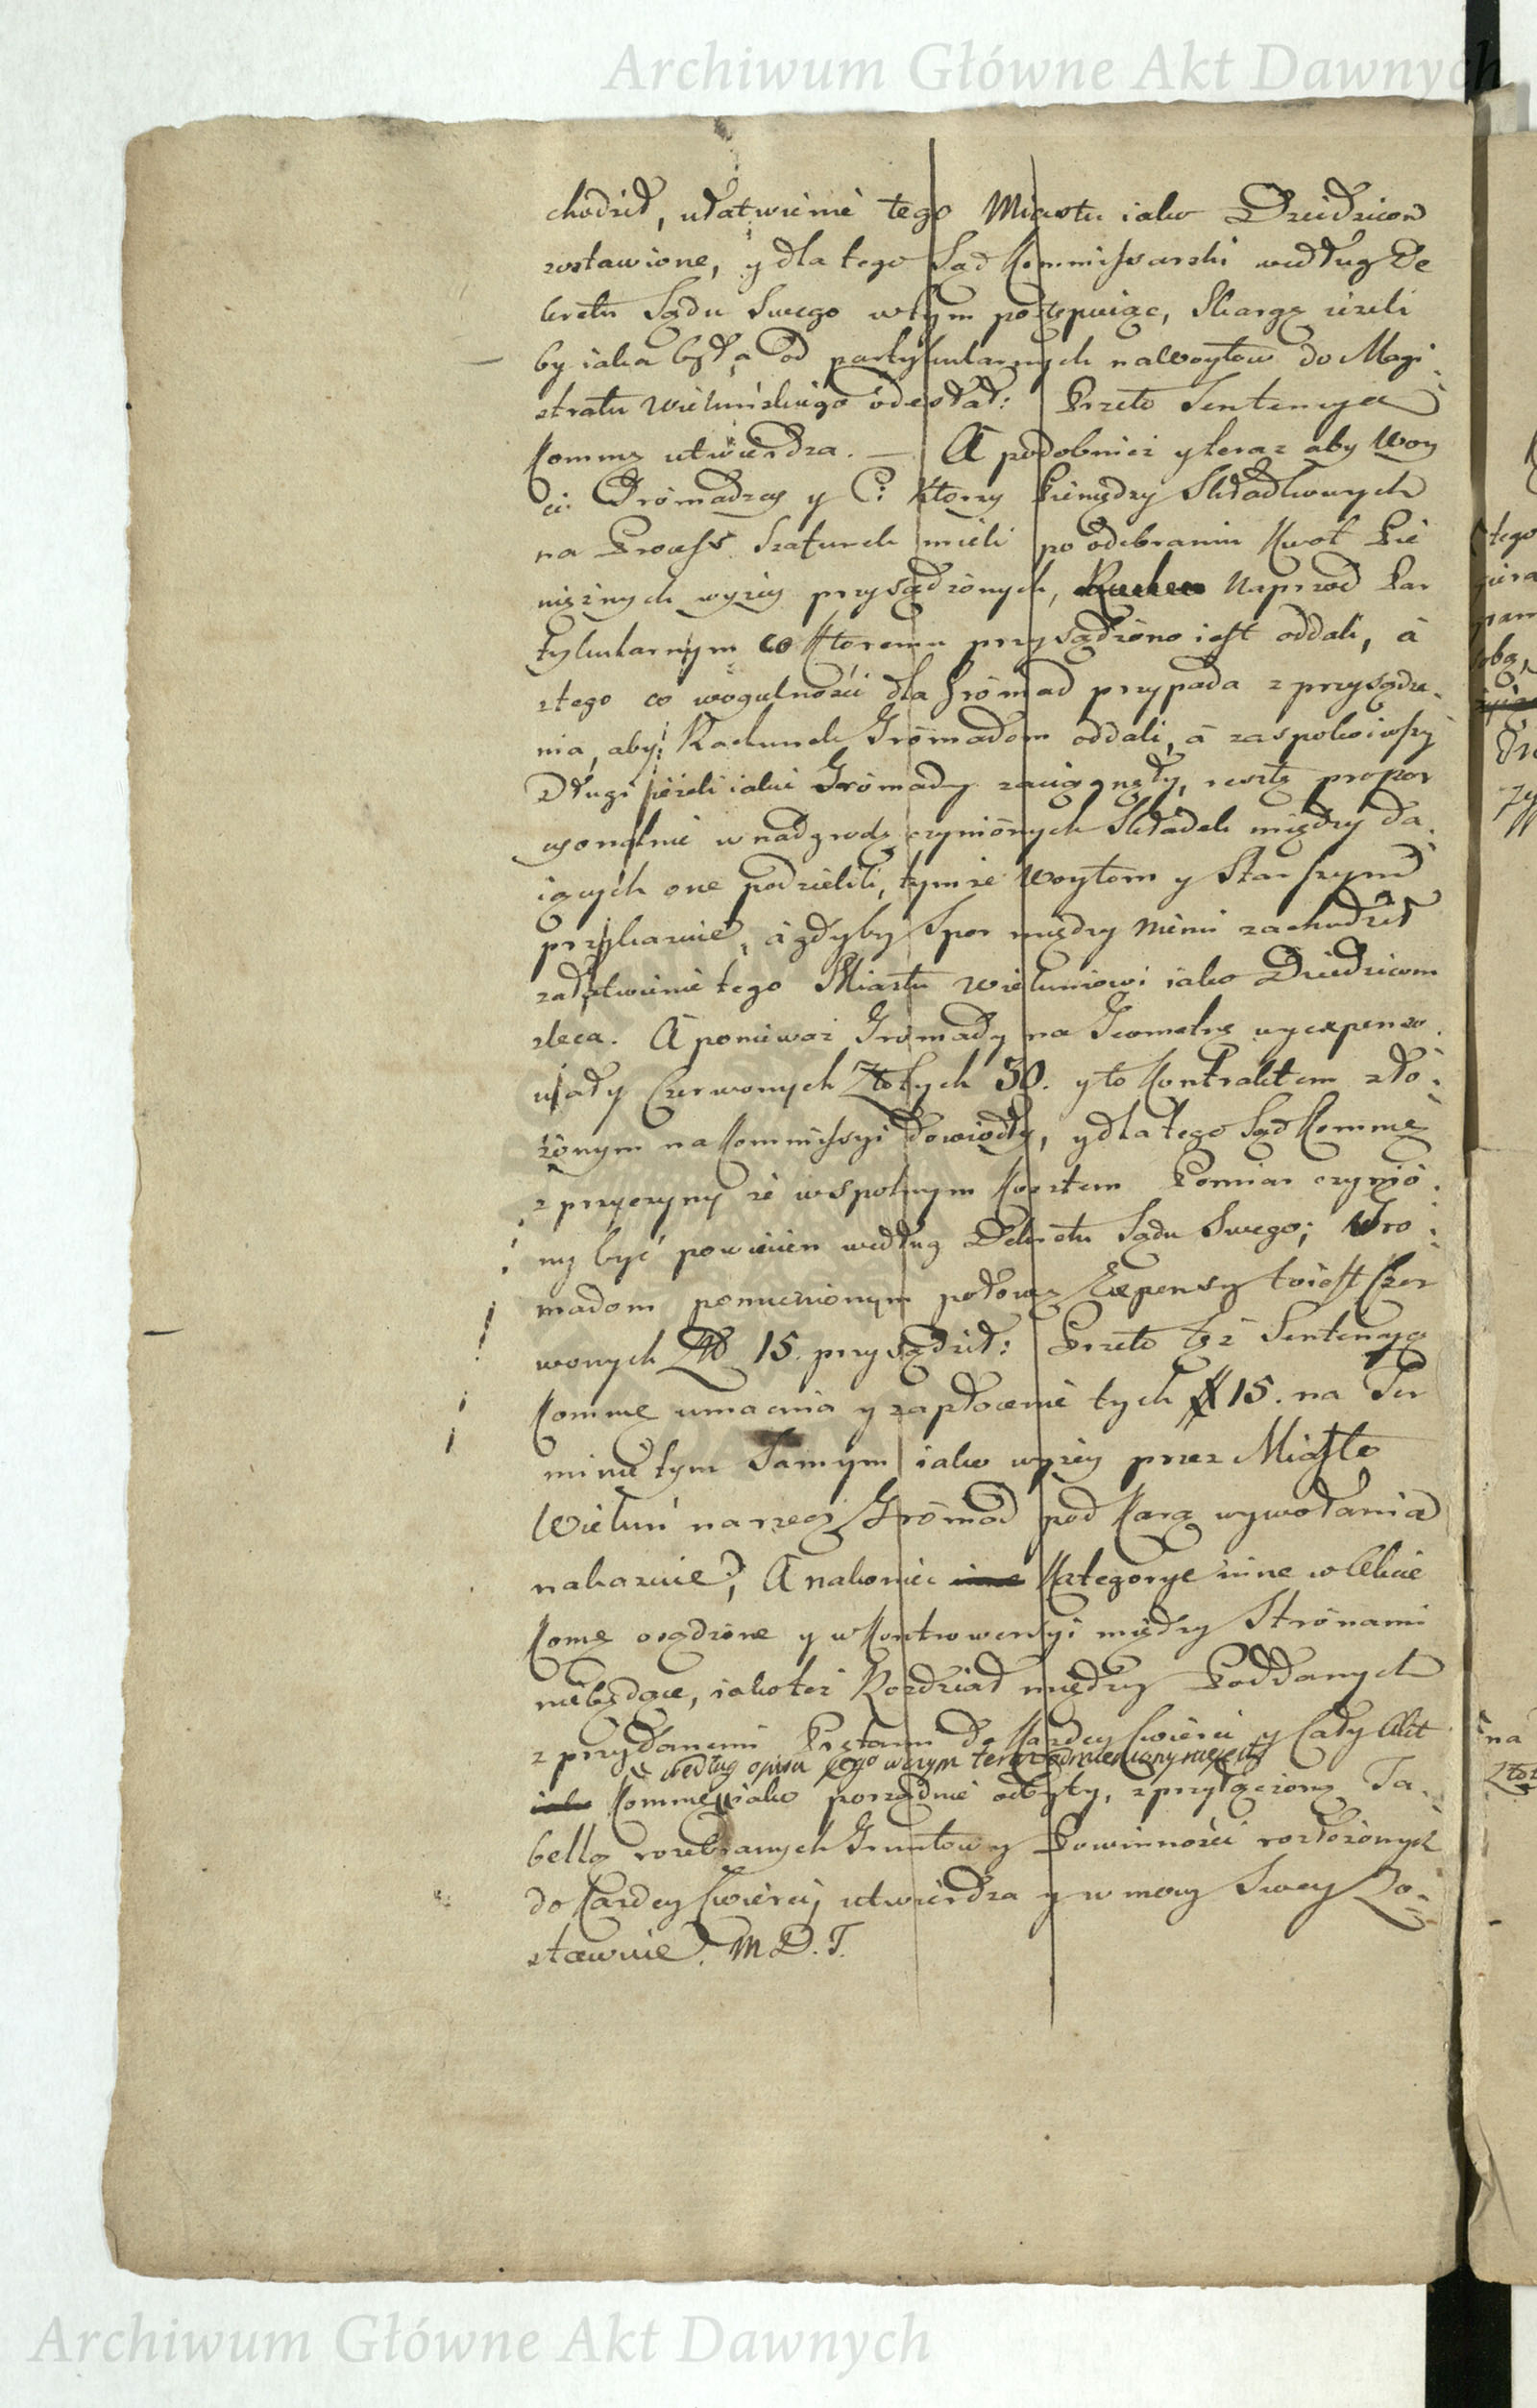 Archiwum Główne Akt Dawnych
chodził, ułatwienie tego Miastu iako Dziedzicow
zostawione, y dla tego Sąd Kommissarski według De
kretu Sądu Swego w tym postępuiąc, Skargę ieżeli
by iaka była od partykularnych na Woytow do Magi:
stratu Wieluńskiego odesłał: Przeto Sentencya
Kommę utwierdza. — A podobnież y teraz aby Woy
ci Gromadzcy y Ci ktorzy Pieniędzy Składkowych
na Process Szafunek mieli po odebraniu Kwot Pie
niężnych wyżey przysądzonych, Naprzod Par
tykularnym co ktoremu przysądzono iest oddali, à
z tego co wogulności dla Gromad przypada z przysądze:
nia, aby Rachunek Gromadom oddali, à zaspokoiwszy
Długi ieżeli iakie Gromady zaciągnęły, resztę propor
cyonalnie w nadgrodę czynionych Składek między da:
iących one podzielili, tymże Woytom y Starszym
przykazuie, à gdyby Spor między niemi zachodził
załatwienie tego Miastu Wieluniowi iako Dziedzicom
zleca. A ponieważ Gromady na Geometrę wyexpenso:
wały Czerwonych Złotych 30. y to Kontraktem zło:
żonym na Kommissyi dowiodły, y dla tego Sąd Kommę
z przyczyny że wspolnym Kosztem Pomiar czynio:
ny być powinien według Dekretu Sądu Swego; Gro:
madom pomienionym połowę Expensy to iest Czer
wonych Zł 15. przysądził: Przeto też Sentencyą
Kommę umacnia y zapłacenie tych # 15. na Ter
minie tym Samym iako wyżey przez Miasto
Wieluń na rzecz Gromad pod Karą wywołania
nakazuie, A nakoniec Kategorye inne w Akcie
Komę osądzone y w Kontrowersyi między Stronami
niebędące, iako też Rozdział między Poddanych
z przydanemi Pustami do Każdey Cwierci y Cały Akt
według opisu Jego w czym teraz odmieniony nie jest
Kommę iako porządnie odbyty, z przyłączoną Ta:
bellą rozebranych Gruntow y Powinności rozłożonych
do Każdey Cwierci, utwierdza y w mocy Swey Zo:
stawuie. M D. T.
Archiwum Główne Akt Dawnych